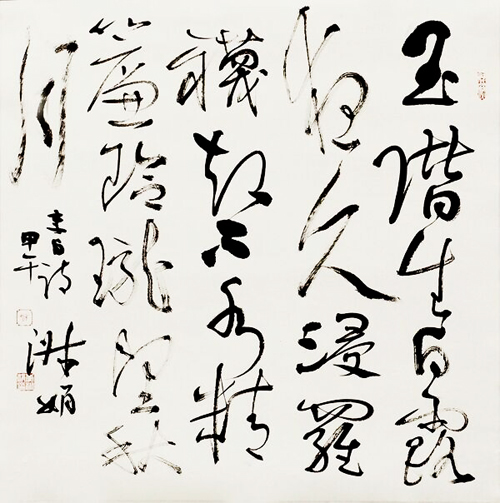 玉階生白露
夜久浸羅
襪却下水精
簾玲瓏望秋
月
李白詩
甲午
淑娟